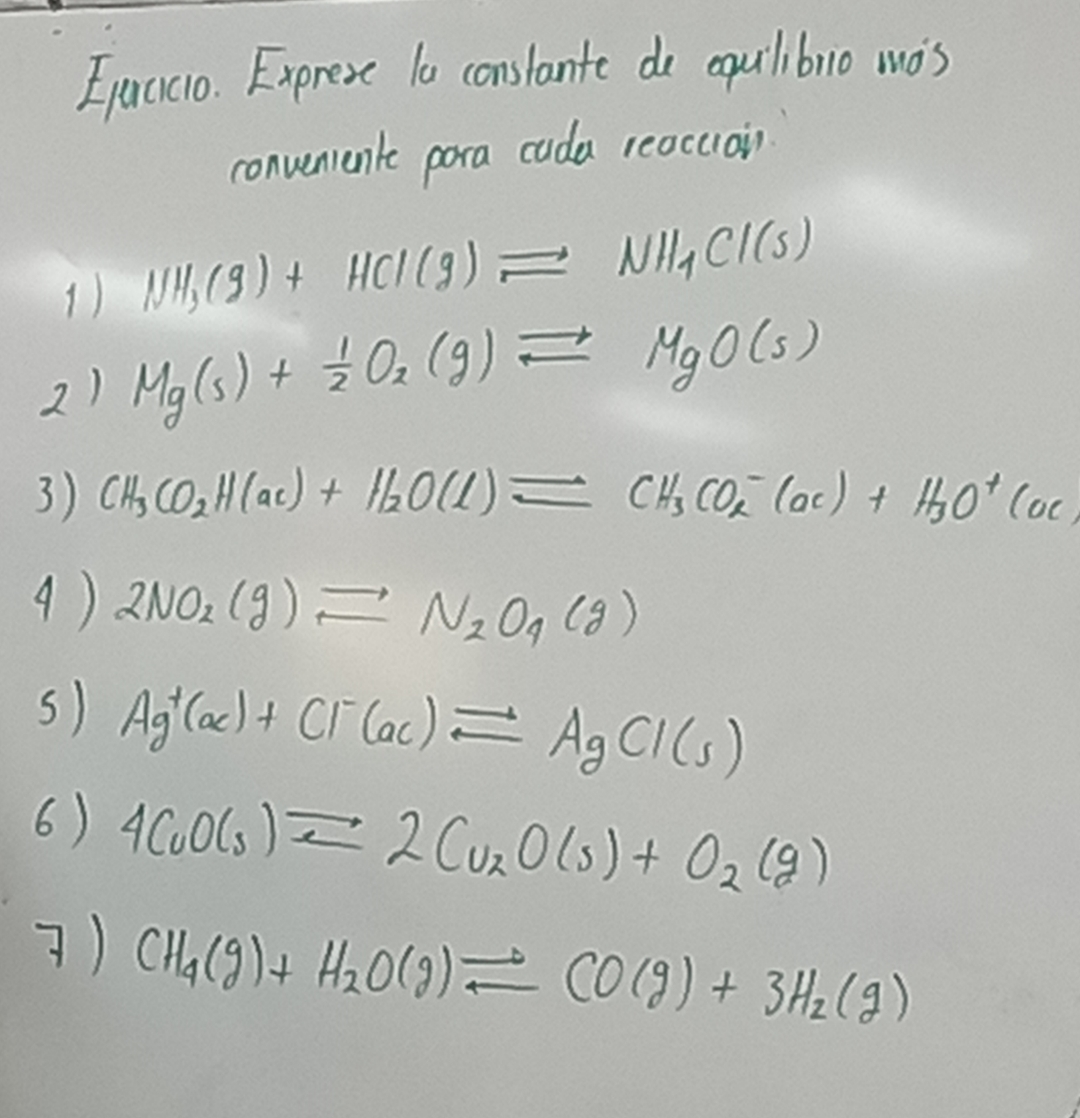 Ejercicio. Exprese la constante de equilibrio más
conveniente para cada reacción.
1) NH₃(g) + HCl(g) ⇌ NH₄Cl(s)
2) Mg(s) + ½O₂(g) ⇄ MgO(s)
3) CH₃CO₂H(ac) + H₂O(l) ⇌ CH₃CO₂⁻(ac) + H₃O⁺(ac)
4) 2NO₂(g) ⇄ N₂O₄(g)
5) Ag⁺(ac) + Cl⁻(ac) ⇄ AgCl(s)
6) 4CuO(s) ⇄ 2Cu₂O(s) + O₂(g)
7) CH₄(g) + H₂O(g) ⇄ CO(g) + 3H₂(g)